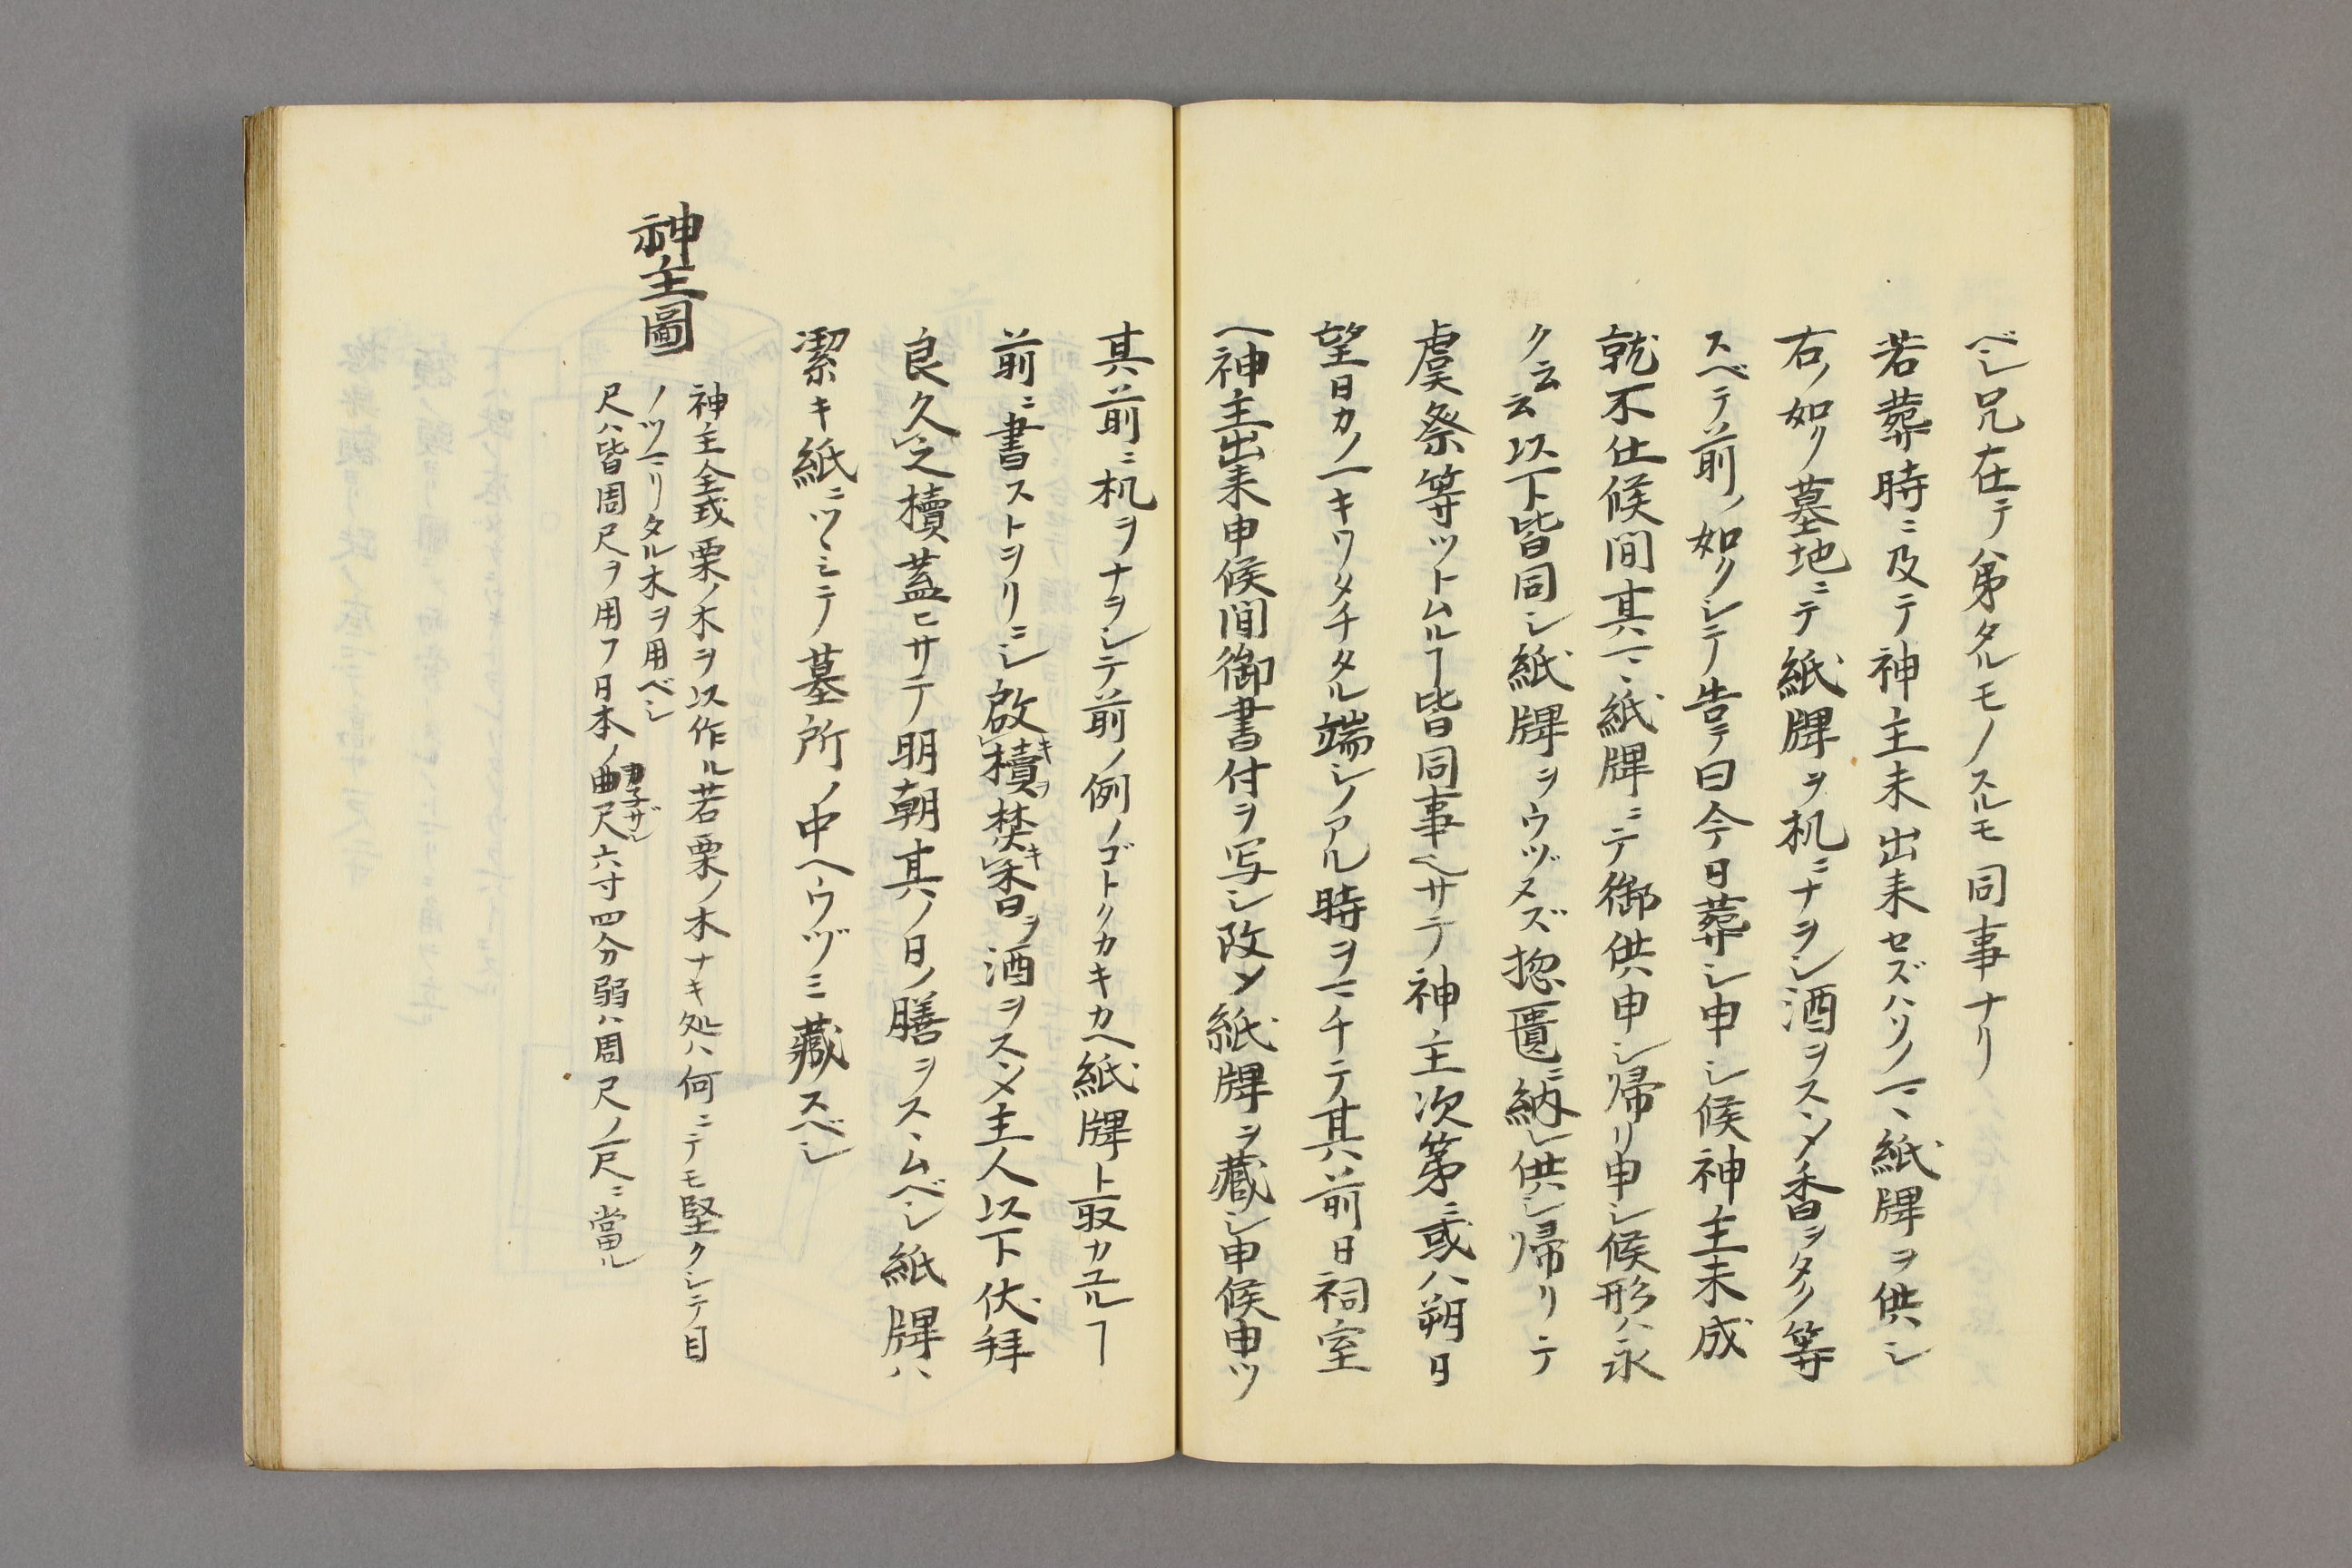 ベシ兄在テ弟タルモノスルモ同事ナリ
若葬時ニ及テ神主未出来セズハソノマヽ紙牌ヲ供シ
右ノ如ク墓地ニテ紙牌ヲ机ニナヲシ酒ヲスヽメ香ヲタク等
スベテ前ノ如クシテ告テ曰今日葬シ申シ候神主未成
就不仕候間其マヽ紙牌ニテ御供申シ帰リ申シ候形ハ永
ク云云以下皆同シ紙牌ヲウヅスズ惣匱ニ納レ供シ帰リテ
虞祭等ツトムルヿ皆同事也サテ神主次第ニ或ハ朔日
望日カノ一キワタチタル端シノアル時ヲマチテ其前日祠室
ヘ神主出来申候間御書付ヲ写シ改メ紙牌ヲ蔵シ申候申ツ
其前ニ机ヲナヲシテ前ノ例ノゴトクカキカヘ紙牌ト取カユルヿ
前ニ書ストヲリニシ啟櫝キヲ焚キ香ヲ酒ヲスヽメ主人以下伏拜
良久之櫝蓋ヒサテ明朝其ノ日ノ膳ヲスヽムベシ紙牌ハ
潔キ紙ニツヽミテ墓所ノ中ヘウヅミ藏スベシ
神主圖
神主全式栗ノ木ヲ以作ル若栗ノ木ナキ処ハ何ニテモ堅クシテ目
ノツマリタル木ヲ用ベシ
尺ハ皆周尺ヲ用フ日本ノ曲尺カネザル六寸四分弱ハ周尺ノ一尺ニ當ル